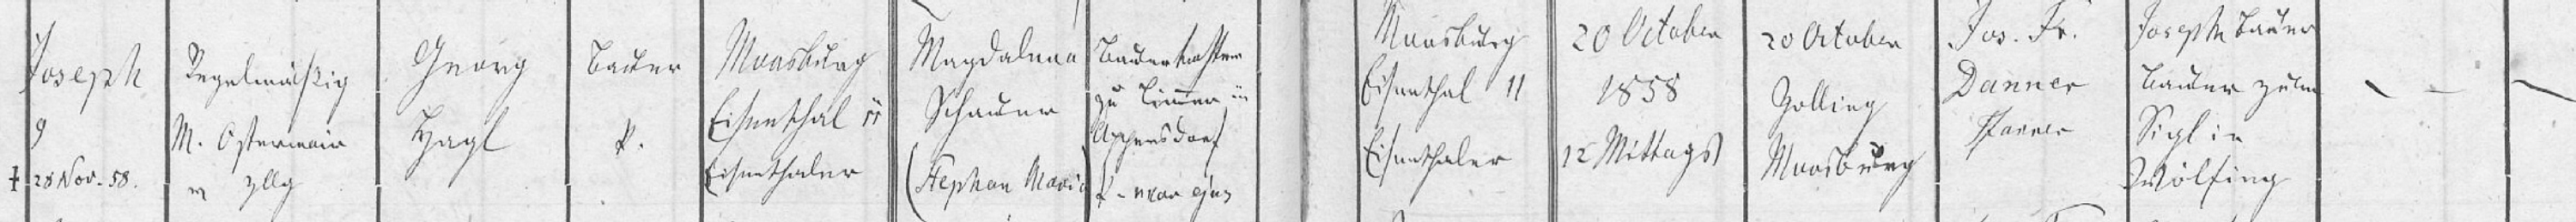 Joseph
9
† 28 Nov. 58.
Regelmäßig
M. Ostermair
in Zllg
Georg
Hagl
Bauer
k.
Moosburg
Eisenthal 11
Eisenthaler
Magdalena
Schauer
(Stephan Maria
Bauerstochter
zu
Appersdorf
Moosburg
Eisenthal 11
Eisenthaler
20 October
1858
12 Mittags
20 October
Zolling
Moosburg
Jos. Fr.
Danner
Pfarrer
Joseph Bauer
Bauer zum
Sigl in
Wölfing